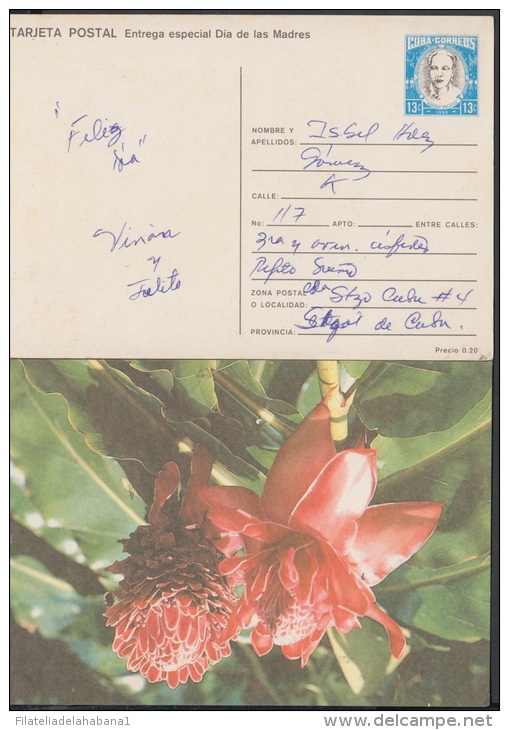 TARJETA POSTAL Entrega especial Día de las Madres
CUBA-CORREOS
13c 13c
"Feliz
día"
Viviana
y
Joelito
NOMBRE Y
APELLIDOS: Isbel
Gómez
K
CALLE:
No: 117 APTO: ENTRE CALLES:
3ra y
Pepito
ZONA POSTAL
O LOCALIDAD: Stgo Cuba #4
PROVINCIA: Stgo de Cuba.
Precio 0.20
Filateliadelahabana1
http://www.delcampe.net